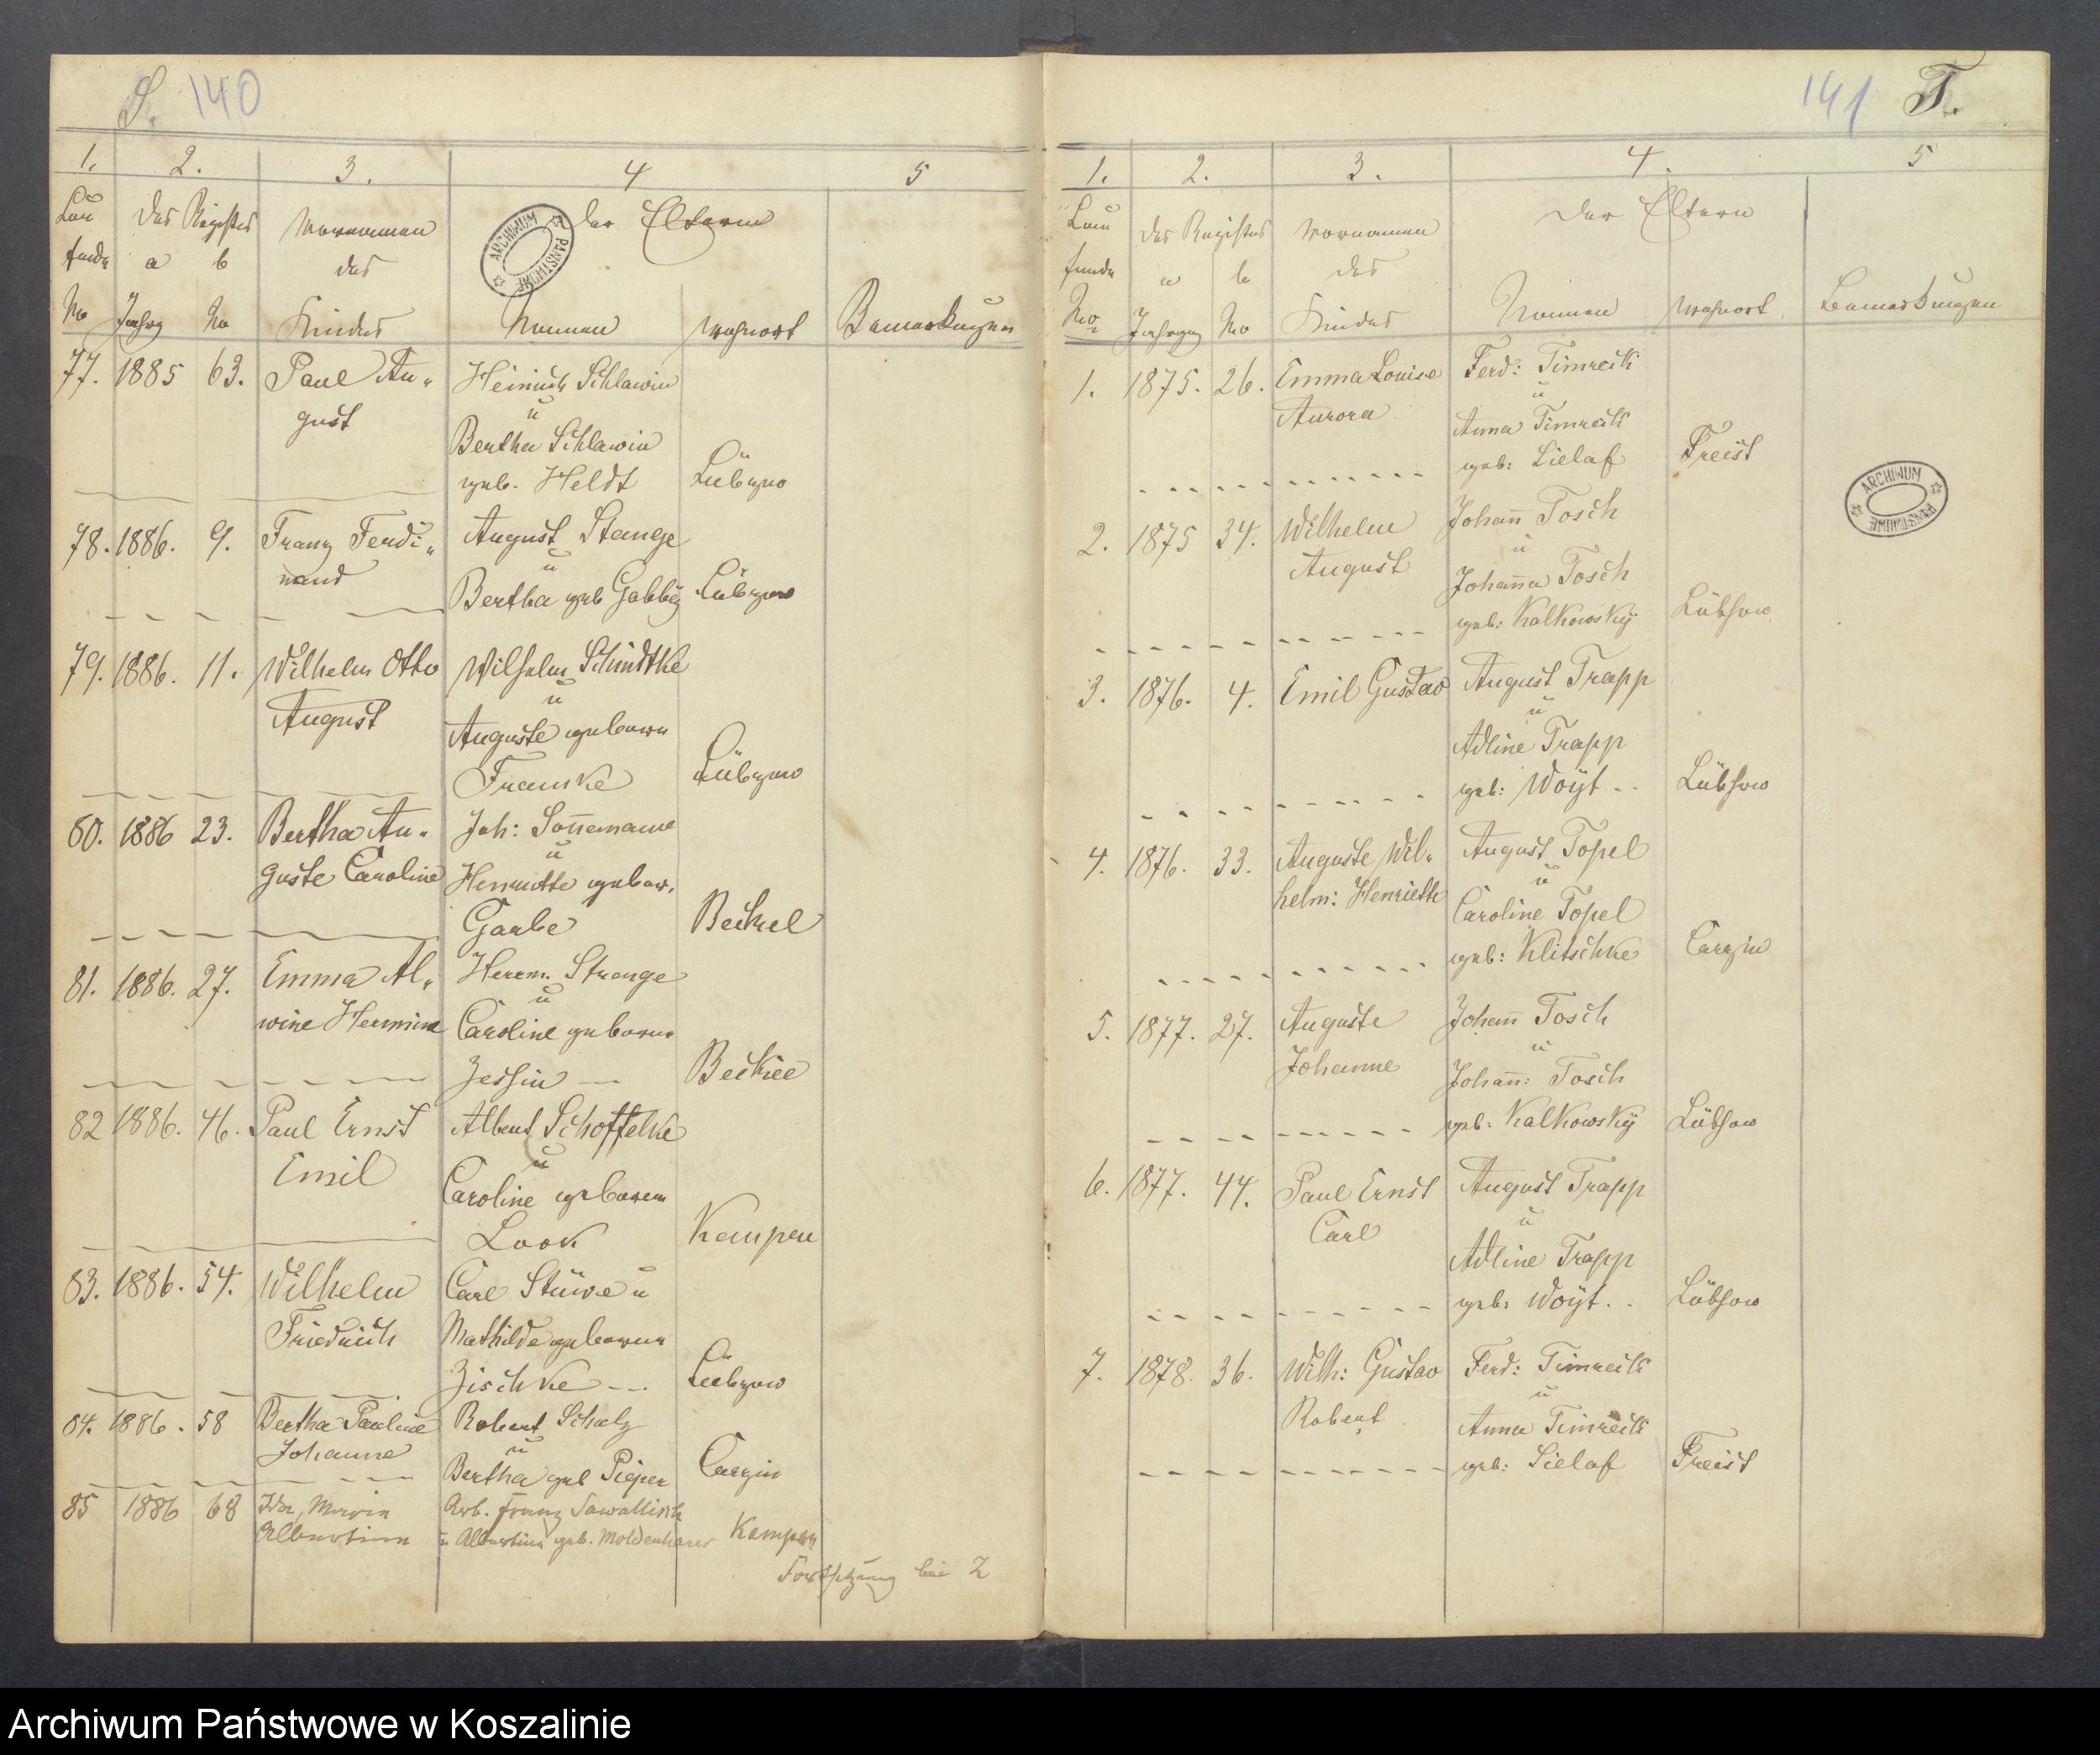 S. 140
1. 2. 3. 4 5
Lau des Registers Vornamen der Eltern
fende a b des
No Jahrg No Kindes Namen Wohnort Bemerkungen
77. 1885 63. Paul Au„ Heinrich Schlawin
gust u
Bertha Schlawin
geb. Heldt Lübzow
78. 1886. 9. Franz Ferdi„ August Stange
nand u
Bertha geb Gabbey Lübzow
79. 1886. 11. Wilhelm Otto Wilhelm Schmidtke
August u
Auguste geborne
Franke Lübzow
80. 1886 23. Bertha Au„ Joh: Sonnemann
guste Caroline u
Henriette gebor.
Garbe Beckel
81. 1886. 27. Emma Al„ Herrm. Strange
wine Hermine u
Caroline geborne
Zessin Beckel
82 1886. 46. Paul Ernst Albert Schoffelke
Emil u
Caroline geborene
Look Kampen
83. 1886. 54. Wilhelm Carl Stüwe u
Friedrich Mathilde geborene
Zischke Lübzow
84. 1886. 58 Bertha Pauline Robert Schulz
Johanne u
Bertha geb Pieper Carzin
85 1886 68 Ida, Maria Arb. Franz Sawallisch
Albertine u Albertine geb. Moldenhauer Kampen
Fortsetzung bei Z
141 T.
1. 2. 3. 4. 5
Lau des Registers Vornamen der Eltern
fende a b des
No Jahrgang No Kindes Namen Wohnort Bemerkungen
1. 1875. 26. Emma Louise Ferd: Timreck
Aurora u
Anna Timreck
geb: Sielaf Freist
2. 1875 34. Wilhelm Johann Tosch
August u
Johanna Tosch
geb: Kalkowsky Lübsow
3. 1876. 4. Emil Gustav August Trapp
u
Adline Trapp
geb: Woyt Lübsow
4. 1876. 33. Auguste Wil„ August Topel
helm: Henriette u
Caroline Topel
geb: Klitschke Carzin
5. 1877. 27. Auguste Johann Tosch
Johanne u
Johann: Tosch
geb: Kalkowsky Lübsow
6. 1877. 44. Paul Ernst August Trapp
Carl u
Adline Trapp
geb: Woyt Lübsow
7. 1878. 36. Wilh: Gustav Ferd: Timreck
Robert u
Anna Timreck
geb: Sielaf Freist
ARCHIWUM PAŃSTWOWE
ARCHIWUM PAŃSTWOWE
Archiwum Państwowe w Koszalinie